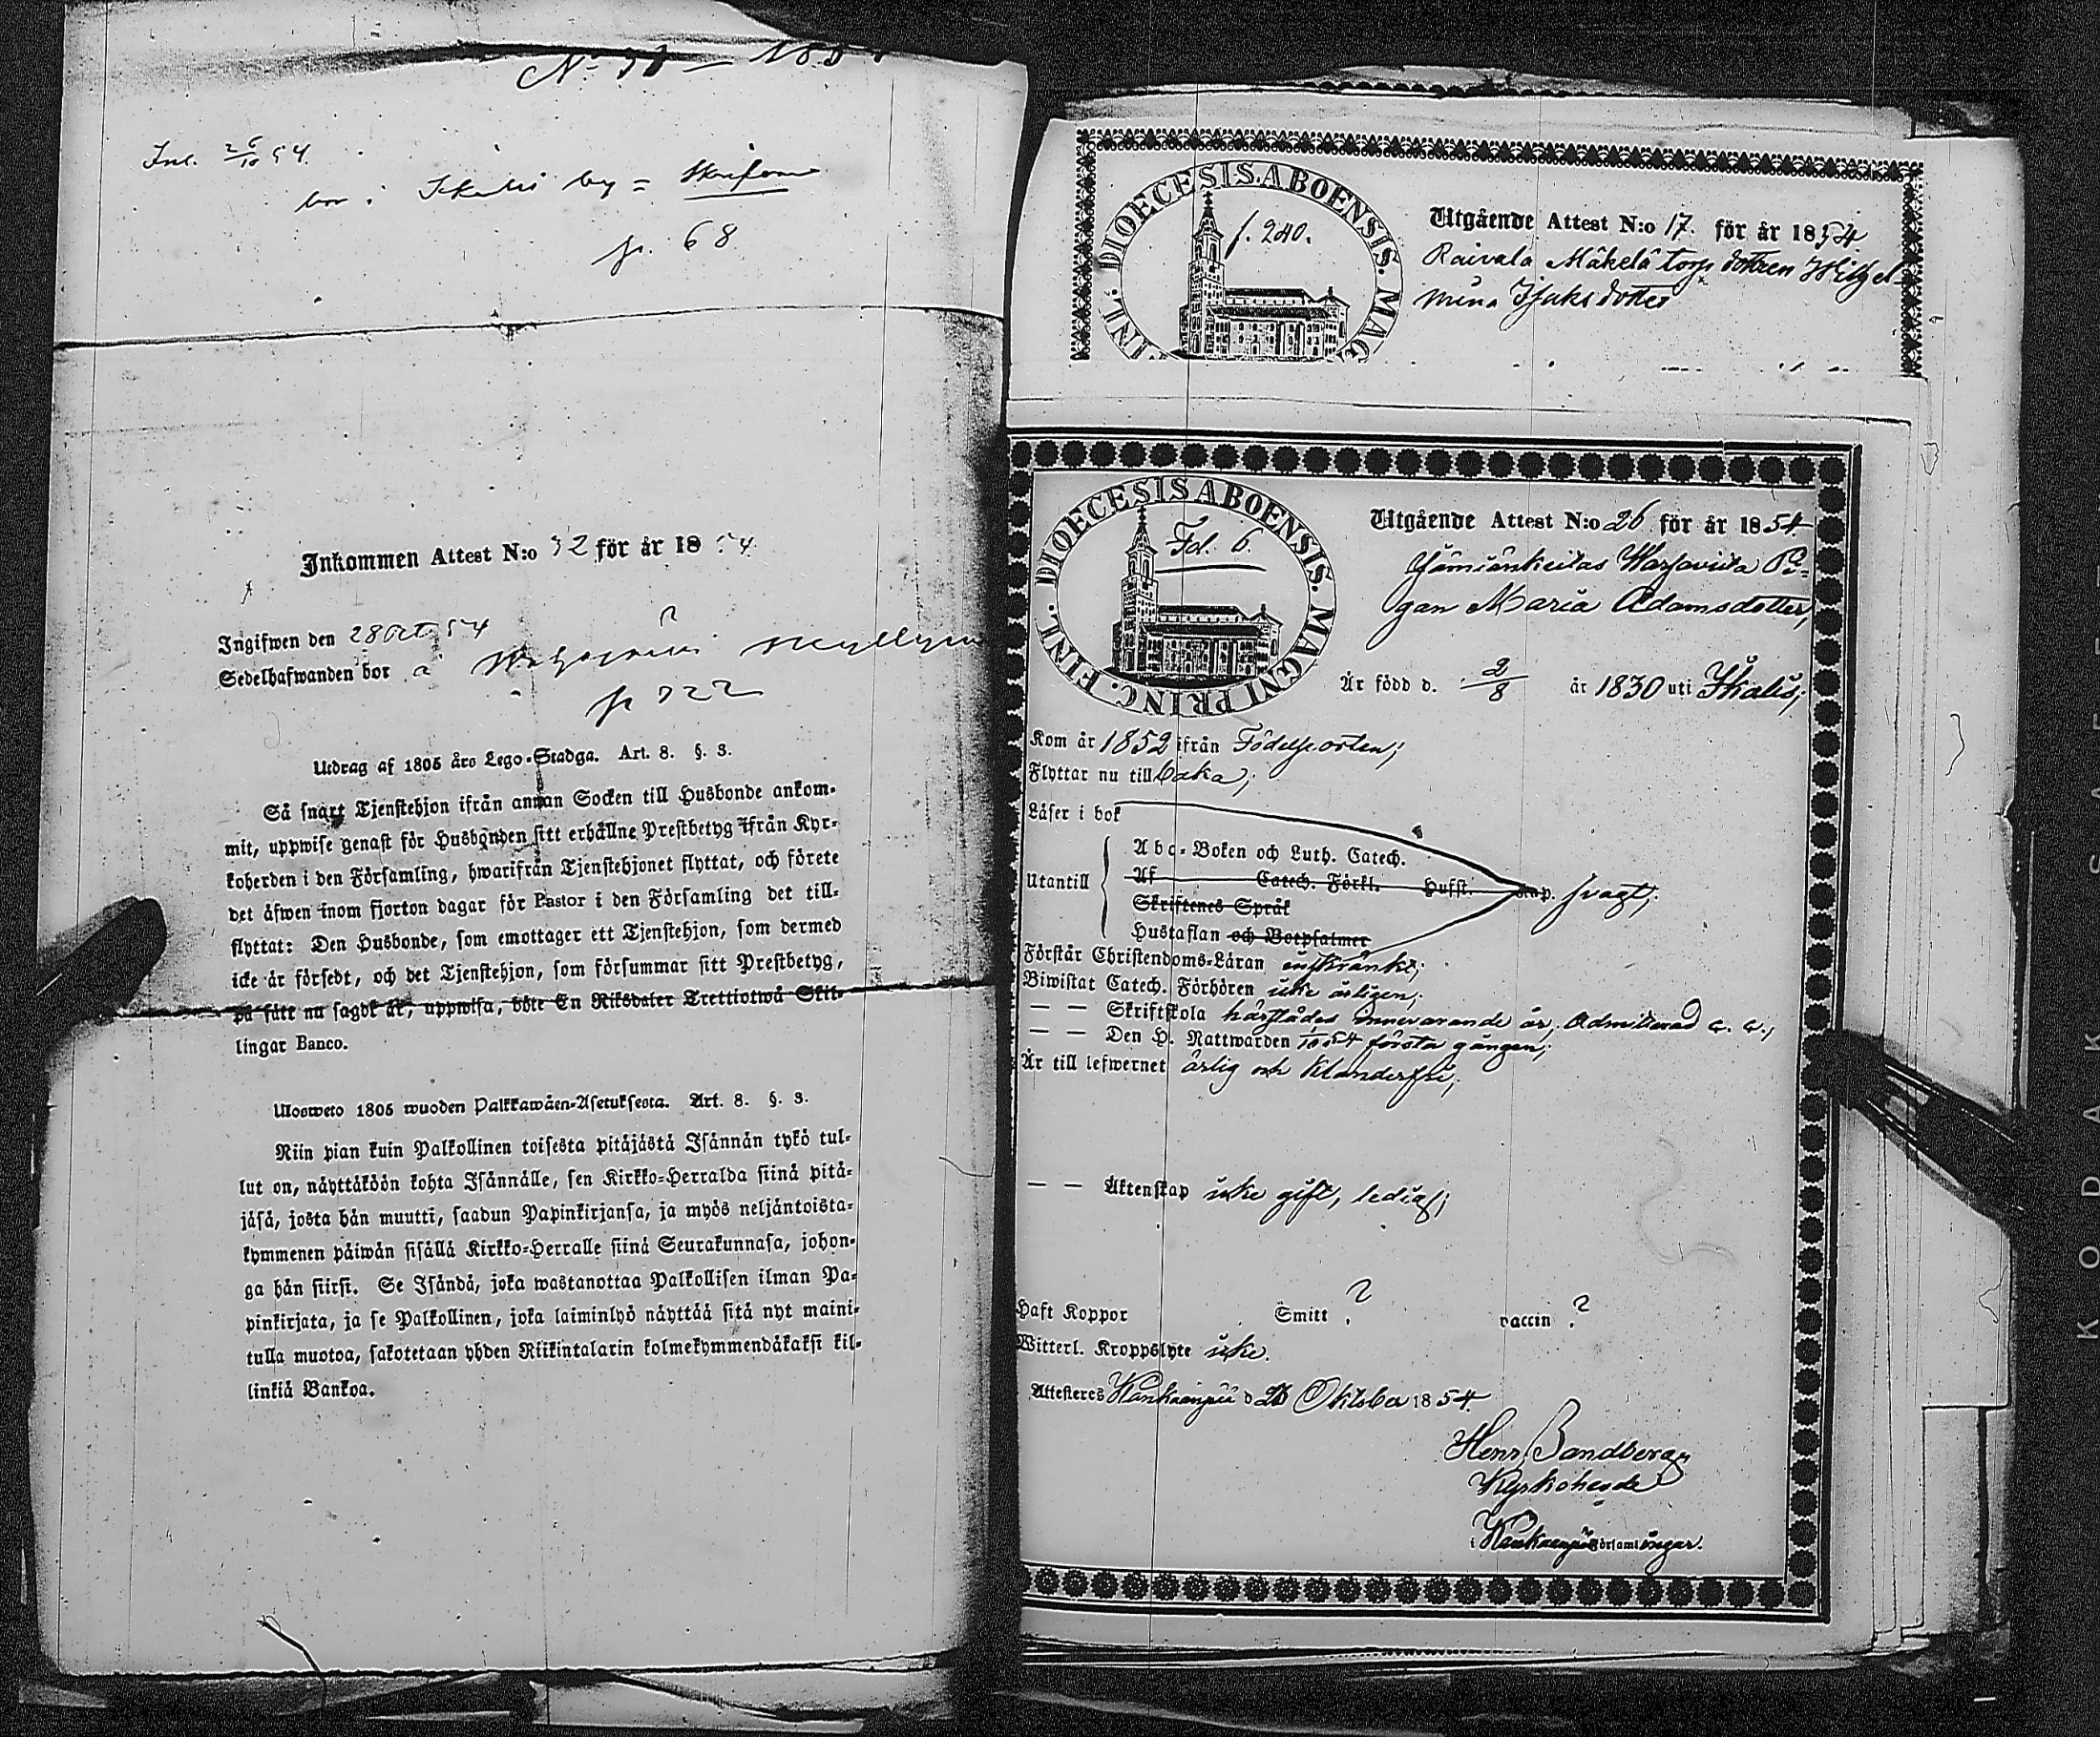 Inl. 26/10 54.
bor i Ikalis by =
p. 68
Inkommen Attest N:o 32 för år 1854
Ingifwen den 28 Oct 54
Sedelhafwanden bor å
p 322
Utdrag af 1805 års Lego-Stadga. Art. 8. §. 3.
Så snart Tjenstehjon ifrån annan Socken till Husbonde ankom-
mit, uppwise genast för Husbonden sitt erhållne Prestbetyg ifrån Kyr-
koherden i den Församling, hwarifrån Tjenstehjonet flyttat, och förete
det äfwen inom fjorton dagar för Pastor i den Församling det till-
flyttat: Den Husbonde, som emottager ett Tjenstehjon, som dermed
icke är försedt, och det Tjenstehjon, som försummar sitt Prestbetyg,
på sätt nu sagdt är, uppwisa, böte En Riksdaler Trettiotwå Skil-
lingar Banco.
Ulosweto 1805 wuoden Palkkawäen-Asetuksesta. Art. 8. §. 3.
Niin pian kuin Palkollinen toisesta pitäjästä Isännän tykö tul-
lut on, näyttäköön kohta Isännälle, sen Kirkko-Herralda siinä pitä-
jäsä, josta hän muutti, saadun Papinkirjansa, ja myös neljäntoista-
kymmenen päiwän sisällä Kirkko-Herralle siinä Seurakunnasa, johon-
ga hän siirsi. Se Isändä, joka wastanottaa Palkollisen ilman Pa-
pinkirjata, ja se Palkollinen, joka laiminlyö näyttää sitä nyt maini-
tulla muotoa, sakotetaan yhden Riikintalarin kolmekymmendäkaksi kil-
linkiä Bankoa.
FINL. DIOECESIS ABOENSIS. MAG
f. 240.
Utgående Attest N:o 17. för år 1854
Raivala Mäkelä torp dottren Wilhel-
mina Isaksdotter
FINL. DIOECESIS ABOENSIS. MAGNI PRINC.
Fol. 6.
Utgående Attest N:o 26 för år 1854.
Pi-
gan Maria Adamsdotter,
Är född d. 2/8 år 1830 uti Ikalis;
Kom år 1852 ifrån Födelseorten;
Flyttar nu tillbaka;
Läser i bok
Utantill
Abc-Boken och Luth. Catech.
Af Catech. Förkl. Husst. Kap. svagt;
Skriftenes Språk
Hustaflan och Botpsalmer
Förstår Christendoms-Läran inskränkt;
Biwistat Catech. Förhören icke årligen;
— — Skriftskola härstädes innevarande år, Admitterad
— — Den H. Nattwarden första gången;
Är till lefwernet ärlig och klanderfri;
— — Äktenskap icke gift, ledig;
Haft Koppor Smitt ? vaccin ?
Witterl. Kroppslyte icke.
Attesteres Kankaanpää d 26 Oktober 1854.
Henr. Sandberg
Kyrkoherde
i Kankaanpää församlingar.
KODAK SAFE